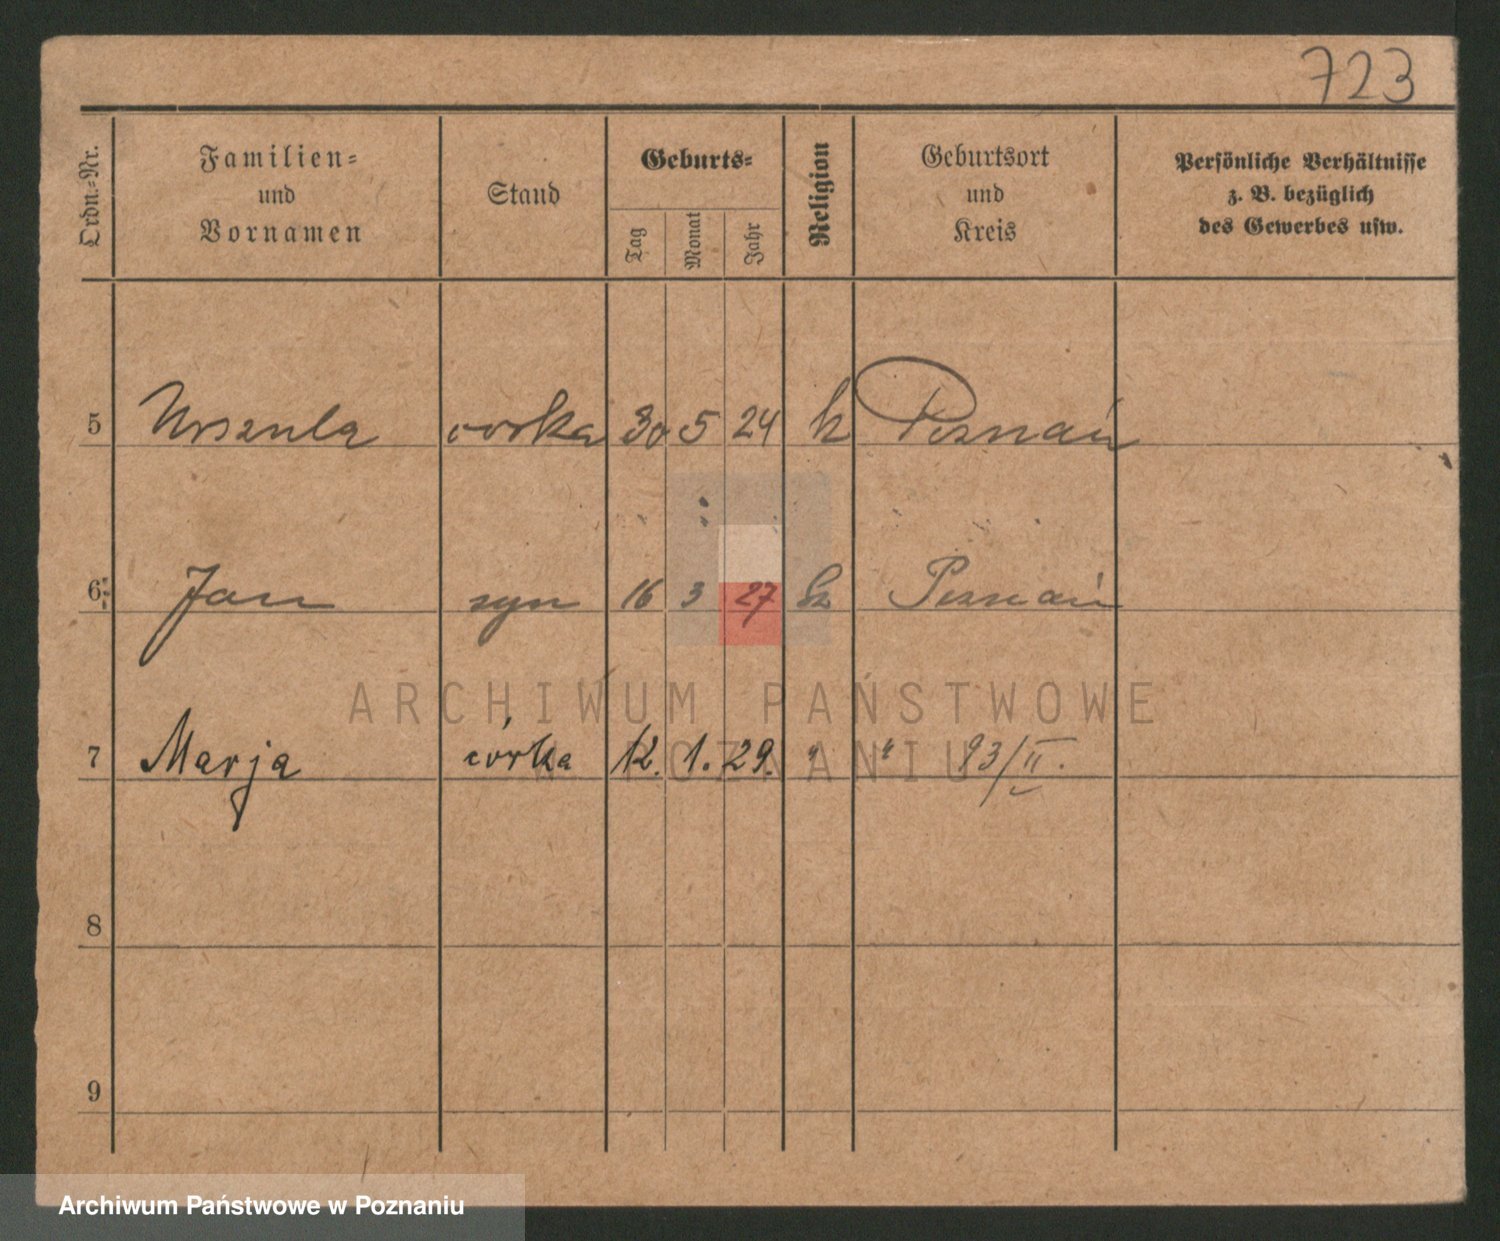 723
Ordn.-Nr.
Familien-
und
Vornamen
Stand
Geburts-
Tag
Monat
Jahr
Religion
Geburtsort
und
Kreis
Persönliche Verhältnisse
z. B. bezüglich
des Gewerbes usw.
5 Urszula córka 30 5 24 k Poznań
6 Jan syn 16 3 27 Poznań
7 Marja córka 12. 1. 29. " " 93/II.
8
9
ARCHIWUM PAŃSTWOWE
W POZNANIU
Archiwum Państwowe w Poznaniu